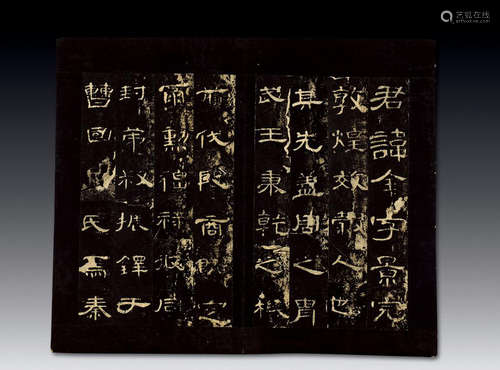 君諱全字景完
敦煌效穀人也
其先蓋周之胄
武王秉乾之機
翦伐殷商既定
爾勳福祿攸同
封弟叔振鐸于
曹國因氏焉秦
艺狐在线